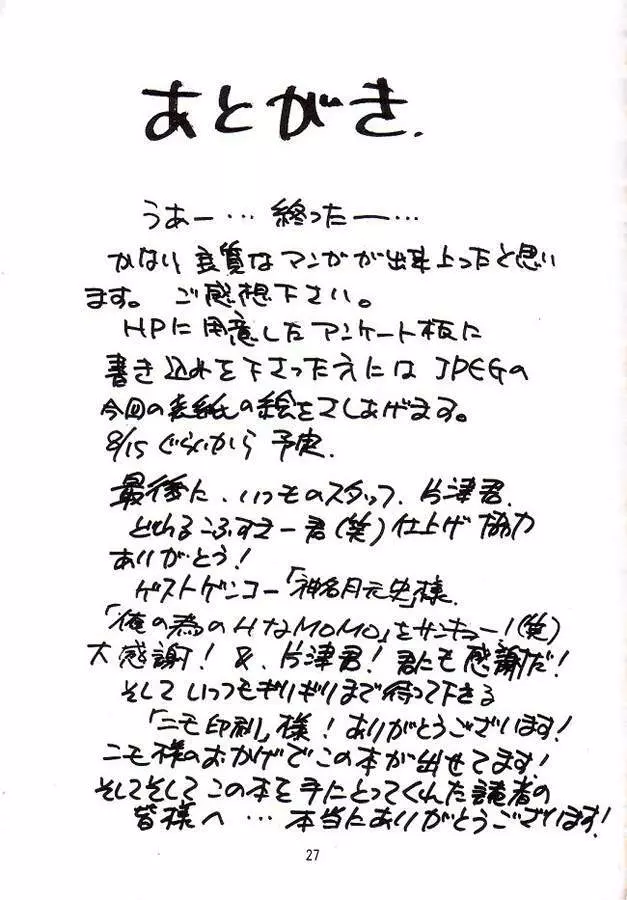 あとがき.
うあー…終ったー…
かない良質なマンガが出来上ったと思い
ます。ご感想下さい。
HPに用意したアンケート板に
書き込めを下さったえには JPEGの
今回の表紙の絵をさしあげます。
8/15ぐらいから予定.
最後に、いつものスタッフ、片津君.
とれるこふすえー君(笑)仕上げ協力
ありがとう!
ゲストゲンコー「神名月元史」様.
「俺の為のHなMOMO」をサンキュー!(笑)
大感謝! &、片津君!君にも感謝だ!
そしていつもぎりぎりまで待って下さる
「ニモ印刷」様!ありがとうございます!
ニモ様のおかげでこの本が出せてます!
そしてそしてこの本を手にとってくんた読者の
皆様へ…本当にありがとうございます!
27